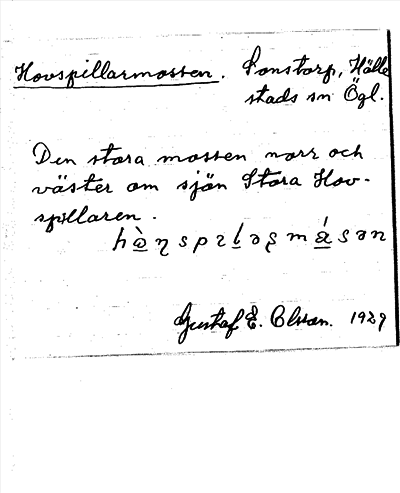 Hovspillarmossen. Sonstorp, Hälle
stads sn Ögl.
Den stora mossen norr och
väster om sjön Stora Hov-
spillaren.
Gustaf E. Olsson. 1929